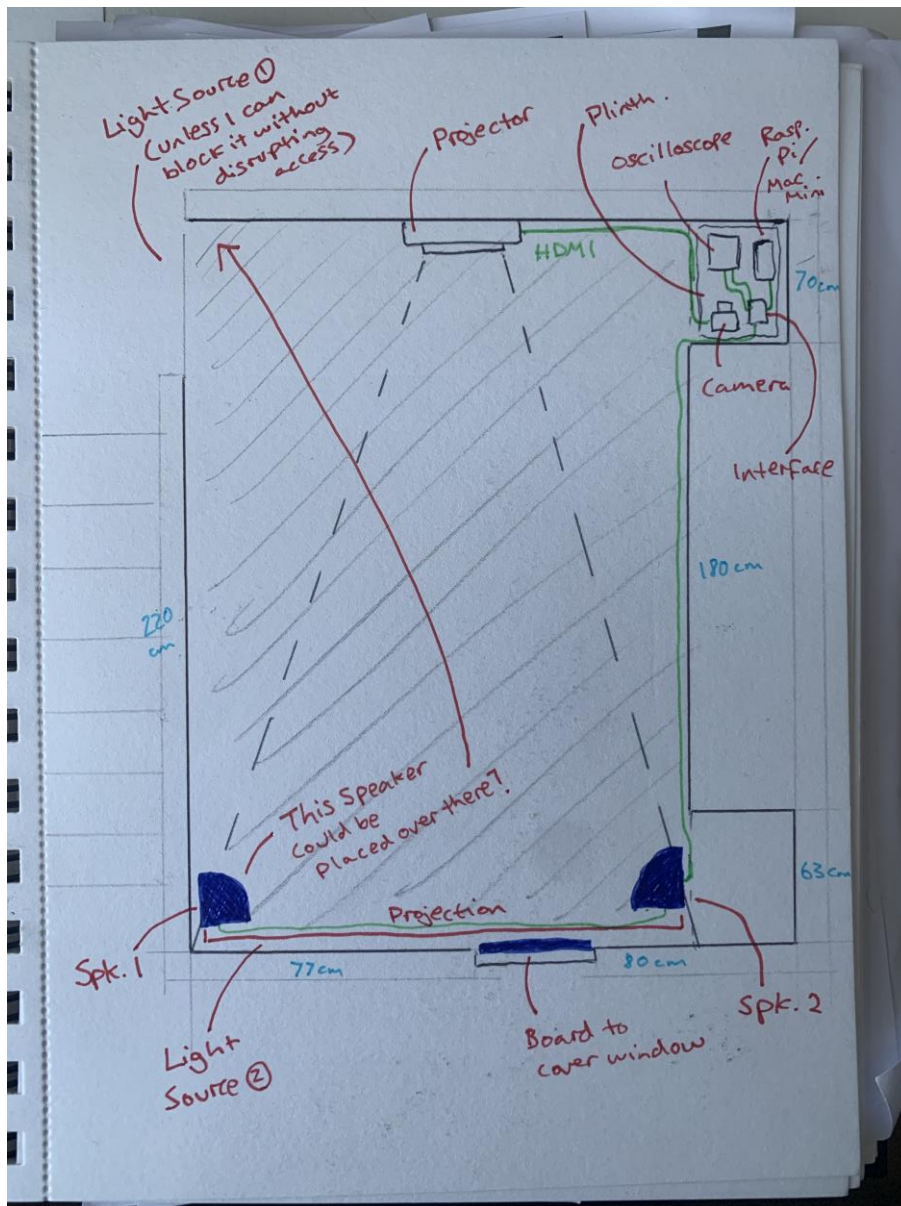 Light Source ①
(unless I can
block it without
disrupting
access)
Projector
Plinth.
Oscilloscope
Rasp.
Pi/
Mac.
Mini
HDMI
70cm
Camera
Interface
180 cm
220
cm
This Speaker
could be
placed over there?
63cm
Projection
Spk. 1
77cm
80cm
Spk. 2
Light
Source ②
Board to
cover window